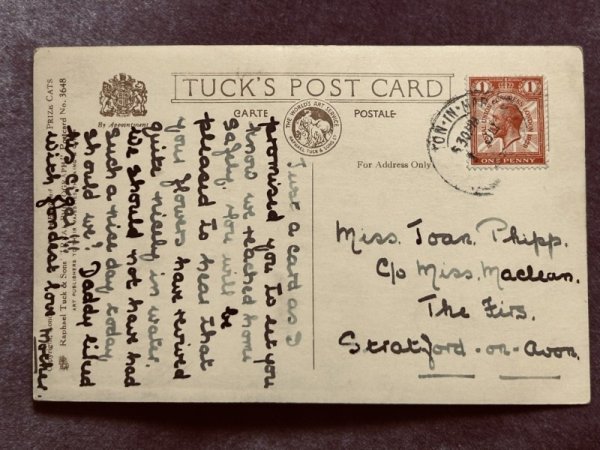 TUCK'S POST CARD
CARTE POSTALE
By Appointment
THE WORLD'S ART SERVICE
RAPHAEL TUCK & SONS LTD
For Address Only
1 1
ONE PENNY
TON-IN-M
5.30 PM
Just a card as I
promised you to let you
know we reached home
safely. You will be
pleased to hear that
your flowers have revived
quite nicely in water.
We should not have had
such a nice day today
should we! Daddy liked
his cigar!!
with fondest love Mother.
Miss. Joan. Phipp.
C/o Miss. Maclean.
The Firs.
Stratford-on-Avon.
PRIZE CATS
Postcard No. 3648
Raphael Tuck & Sons
ART PUBLISHERS TO